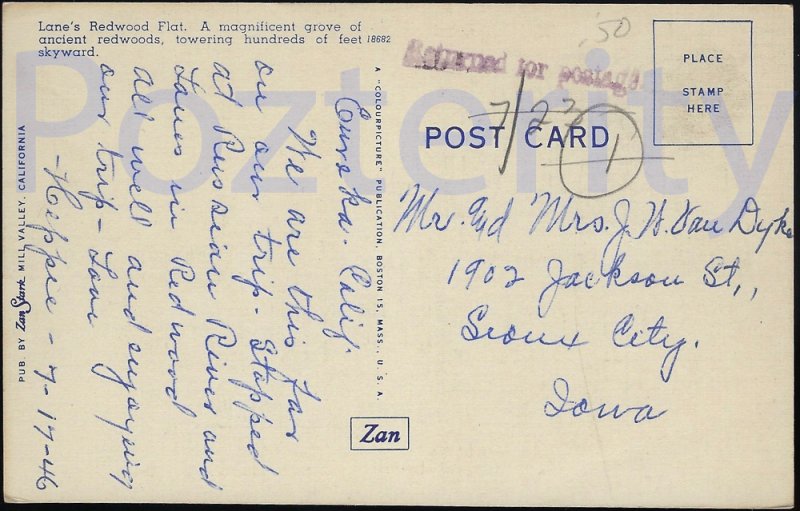 Lane's Redwood Flat. A magnificent grove of
ancient redwoods, towering hundreds of feet 18682
skyward.
Eureka. Calif.
We are this far
on our trip - Stopped
at Russian River and
Lanes in Redwood
All well and enjoying
our trip - Love
- 7-17-46
PUB. BY Zan Stark, MILL VALLEY, CALIFORNIA
A "COLOURPICTURE" PUBLICATION, BOSTON 15, MASS., U. S. A.
Zan
'50
Returned for postage
7/23
1
POST CARD
PLACE
STAMP
HERE
Mr. and Mrs. J. H. Van Dyke
1902 Jackson St.,
Sioux City.
Iowa
Pozterity